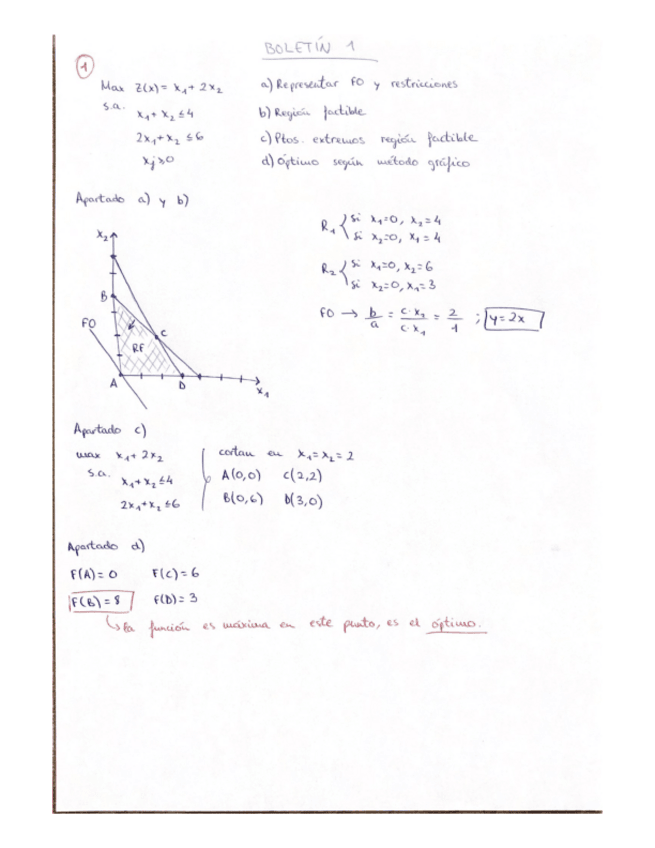 BOLETÍN 1
1
Max Z(x) = x₁ + 2x₂
s.a.
x₁ + x₂ ≤ 4
2x₁ + x₂ ≤ 6
xj ≥ 0
a) Representar FO y restricciones
b) Región factible
c) Ptos. extremos región factible
d) Óptimo según método gráfico
Apartado a) y b)
x₂
B
FO
C
RF
A
D
x₁
R₁ { Si x₁=0, x₂=4
si x₂=0, x₁=4
R₂ { Si x₁=0, x₂=6
si x₂=0, x₁=3
FO → b/a = c·x₂/c·x₁ = 2/1 ; y=2x
Apartado c)
max x₁ + 2x₂
s.a.
x₁ + x₂ ≤ 4
2x₁ + x₂ ≤ 6
cortan en x₁ = x₂ = 2
A(0,0) C(2,2)
B(0,6) D(3,0)
Apartado d)
F(A) = 0 F(C) = 6
F(B) = 8 F(D) = 3
↳ La función es máxima en este punto, es el óptimo.